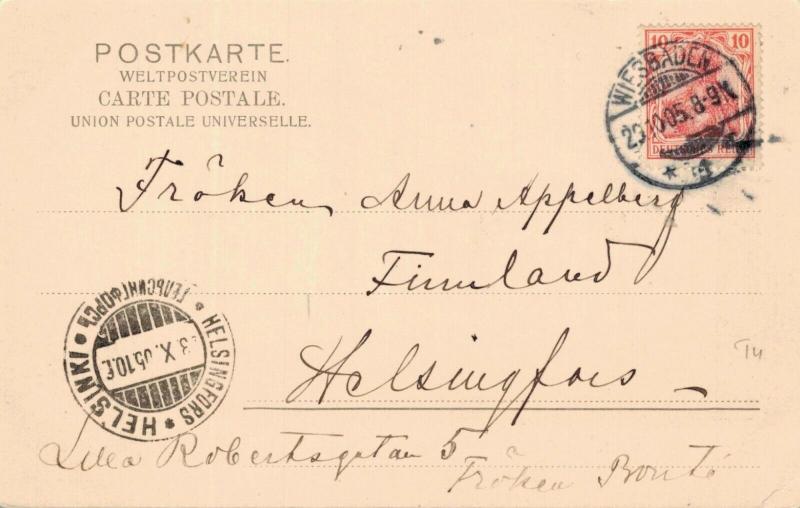 POSTKARTE.
WELTPOSTVEREIN
CARTE POSTALE.
UNION POSTALE UNIVERSELLE.
10 10
DEUTSCHES REICH
WIESBADEN
10.05. 8-9
* 1a
Fröken Anna Appelberg
Finnland
Helsingfors
HELSINGFORS * HELSINKI * ГЕЛЬСИНГФОРСЪ *
3.X.05.10
Robertsgatan 5
Fröken